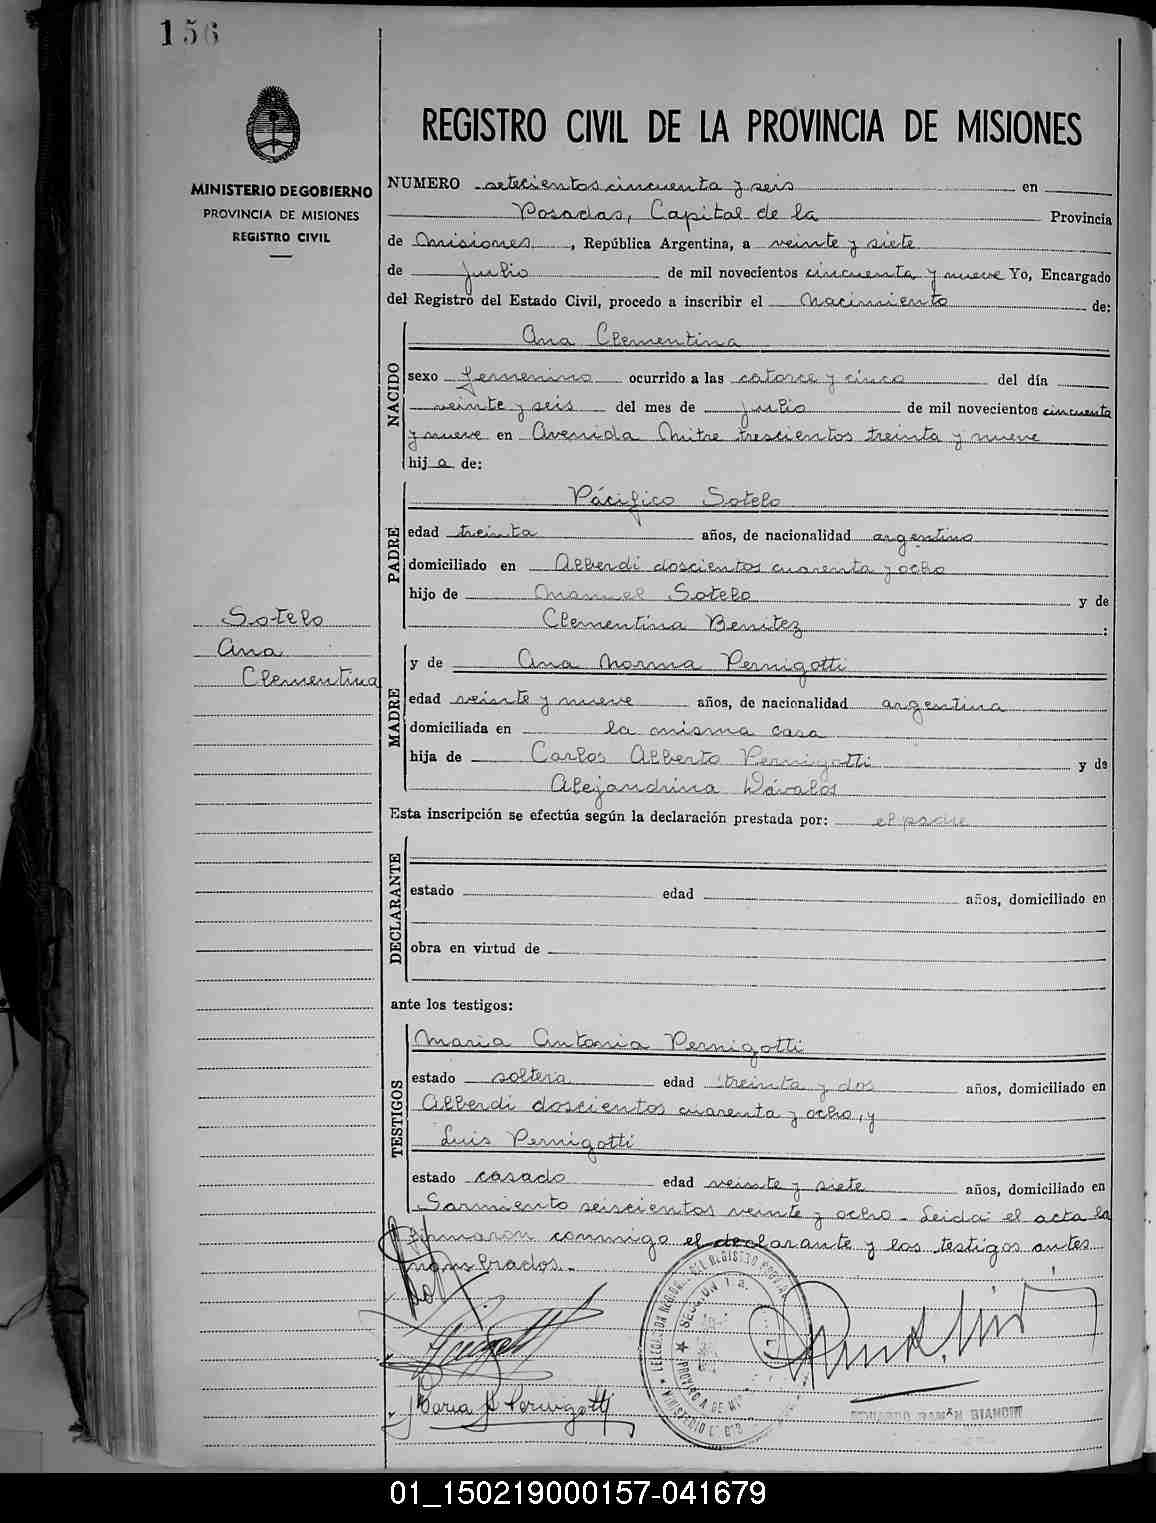 156
MINISTERIO DE GOBIERNO
PROVINCIA DE MISIONES
REGISTRO CIVIL
REGISTRO CIVIL DE LA PROVINCIA DE MISIONES
NUMERO setecientos cincuenta y seis en
Posadas, Capital de la Provincia
de Misiones, República Argentina, a veinte y siete
de Julio de mil novecientos cincuenta y nueve Yo, Encargado
del Registro del Estado Civil, procedo a inscribir el Nacimiento de:
NACIDO
Ana Clementina
sexo femenino ocurrido a las catorce y cinco del día
veinte y seis del mes de Julio de mil novecientos cincuenta
y nueve en Avenida Mitre trescientos treinta y nueve
hij a de:
PADRE
Pácifico Sotelo
edad treinta años, de nacionalidad argentino
domiciliado en Alberdi doscientos cuarenta y ocho
hijo de Manuel Sotelo y de
Clementina Benitez :
Sotelo
Ana
Clementina
MADRE
y de Ana Norma Pernigotti
edad veinte y nueve años, de nacionalidad argentina
domiciliada en la misma casa
hija de Carlos Alberto Pernigotti y de
Alejandrina Dávalos
Esta inscripción se efectúa según la declaración prestada por: el padre
DECLARANTE
estado edad años, domiciliado en
obra en virtud de
ante los testigos:
TESTIGOS
Maria Antonia Pernigotti
estado soltera edad treinta y dos años, domiciliado en
Alberdi doscientos cuarenta y ocho, y
Luis Pernigotti
estado casado edad veinte y siete años, domiciliado en
Sarmiento seiscientos veinte y ocho. Leida el acta la
firmaron conmigo el declarante y los testigos antes
nombrados.-
SECCION 1a.
PROVINCIA DE
MINISTERIO
Maria A Pernigotti
RAMÓN BIANCHI
01_150219000157-041679